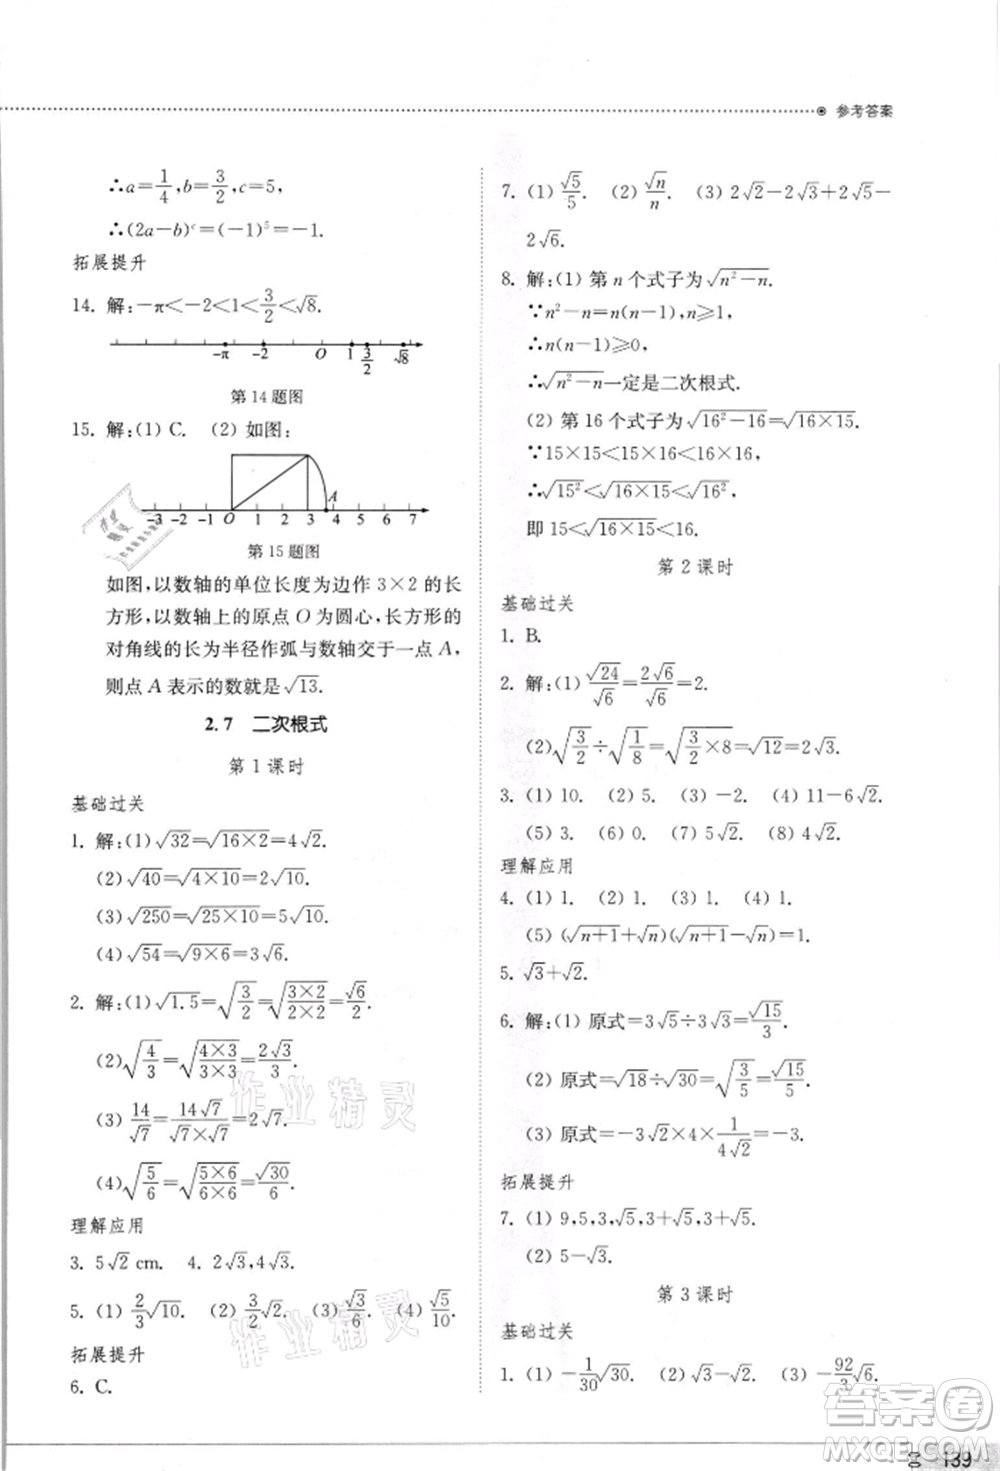 参考答案
∴a=1/4,b=3/2,c=5,
∴(2a-b)ᶜ=(-1)⁵=-1.
拓展提升
14. 解:-π<-2<1<3/2<√8.
-π -2 O 1 3/2 √8
第14题图
15. 解:(1) C. (2) 如图:
A
-3 -2 -1 O 1 2 3 4 5 6 7
第15题图
如图,以数轴的单位长度为边作 3×2 的长
方形,以数轴上的原点 O 为圆心,长方形的
对角线的长为半径作弧与数轴交于一点 A,
则点 A 表示的数就是√13.
2.7 二次根式
第1课时
基础过关
1. 解:(1)√32=√(16×2)=4√2.
(2)√40=√(4×10)=2√10.
(3)√250=√(25×10)=5√10.
(4)√54=√(9×6)=3√6.
2. 解:(1)√1.5=√(3/2)=√((3×2)/(2×2))=√6/2.
(2)√(4/3)=√((4×3)/(3×3))=2√3/3.
(3) 14/√7=14√7/(√7×√7)=2√7.
(4)√(5/6)=√((5×6)/(6×6))=√30/6.
理解应用
3. 5√2 cm. 4. 2√3,4√3.
5. (1) 2/3√10. (2) 3/2√2. (3) √3/6. (4) √5/10.
拓展提升
6. C.
7. (1) √5/5. (2) √n/n. (3) 2√2-2√3+2√5-
2√6.
8. 解:(1) 第 n 个式子为√(n²-n).
∵n²-n=n(n-1),n≥1,
∴n(n-1)≥0.
∴√(n²-n)一定是二次根式.
(2) 第 16 个式子为√(16²-16)=√(16×15).
∵15×15<16×15<16×16,
∴√15²<√(16×15)<√16²,
即 15<√(16×15)<16.
第2课时
基础过关
1. B.
2. 解:(1)√24/√6=2√6/√6=2.
(2)√(3/2)÷√(1/8)=√(3/2×8)=√12=2√3.
3. (1) 10. (2) 5. (3) -2. (4) 11-6√2.
(5) 3. (6) 0. (7) 5√2. (8) 4√2.
理解应用
4. (1) 1. (2) 1. (3) 1. (4) 1.
(5) (√(n+1)+√n)(√(n+1)-√n)=1.
5. √3+√2.
6. 解:(1) 原式=3√5÷3√3=√15/3.
(2) 原式=√18÷√30=√(3/5)=√15/5.
(3) 原式=-3√2×4×1/(4√2)=-3.
拓展提升
7. (1) 9,5,3,√5,3+√5,3+√5.
(2) 5-√3.
第3课时
基础过关
1. (1) -1/30√30. (2) √3-√2. (3) -92/3√2.
139
作业精灵
作业精灵
答案圈
MXQE.COM